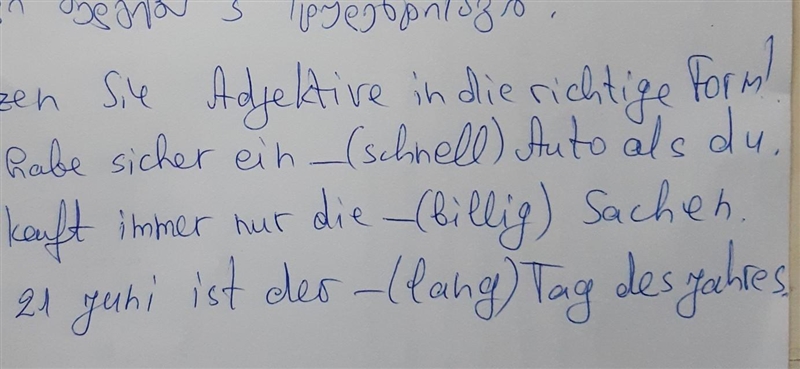 zen Sie Adjektive in die richtige Form!
habe sicher ein _(schnell) Auto als du.
kauft immer nur die _(billig) Sachen.
21 juni ist der _(lang) Tag des jahres.